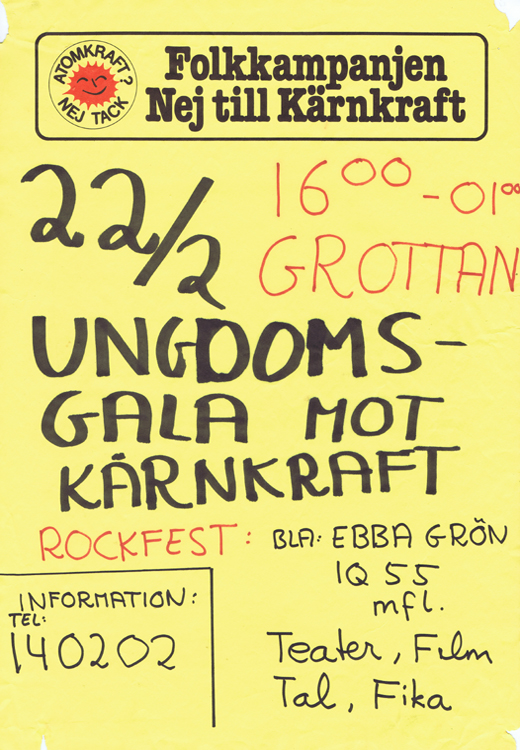 ATOMKRAFT?
NEJ TACK
Folkkampanjen
Nej till Kärnkraft
22/2
16⁰⁰ - 01⁰⁰
GROTTAN
UNGDOMS-
GALA MOT
KÄRNKRAFT
ROCKFEST:
BLA: EBBA GRÖN
IQ 55
mfl.
Teater, Film
Tal, Fika
INFORMATION:
TEL:
140202